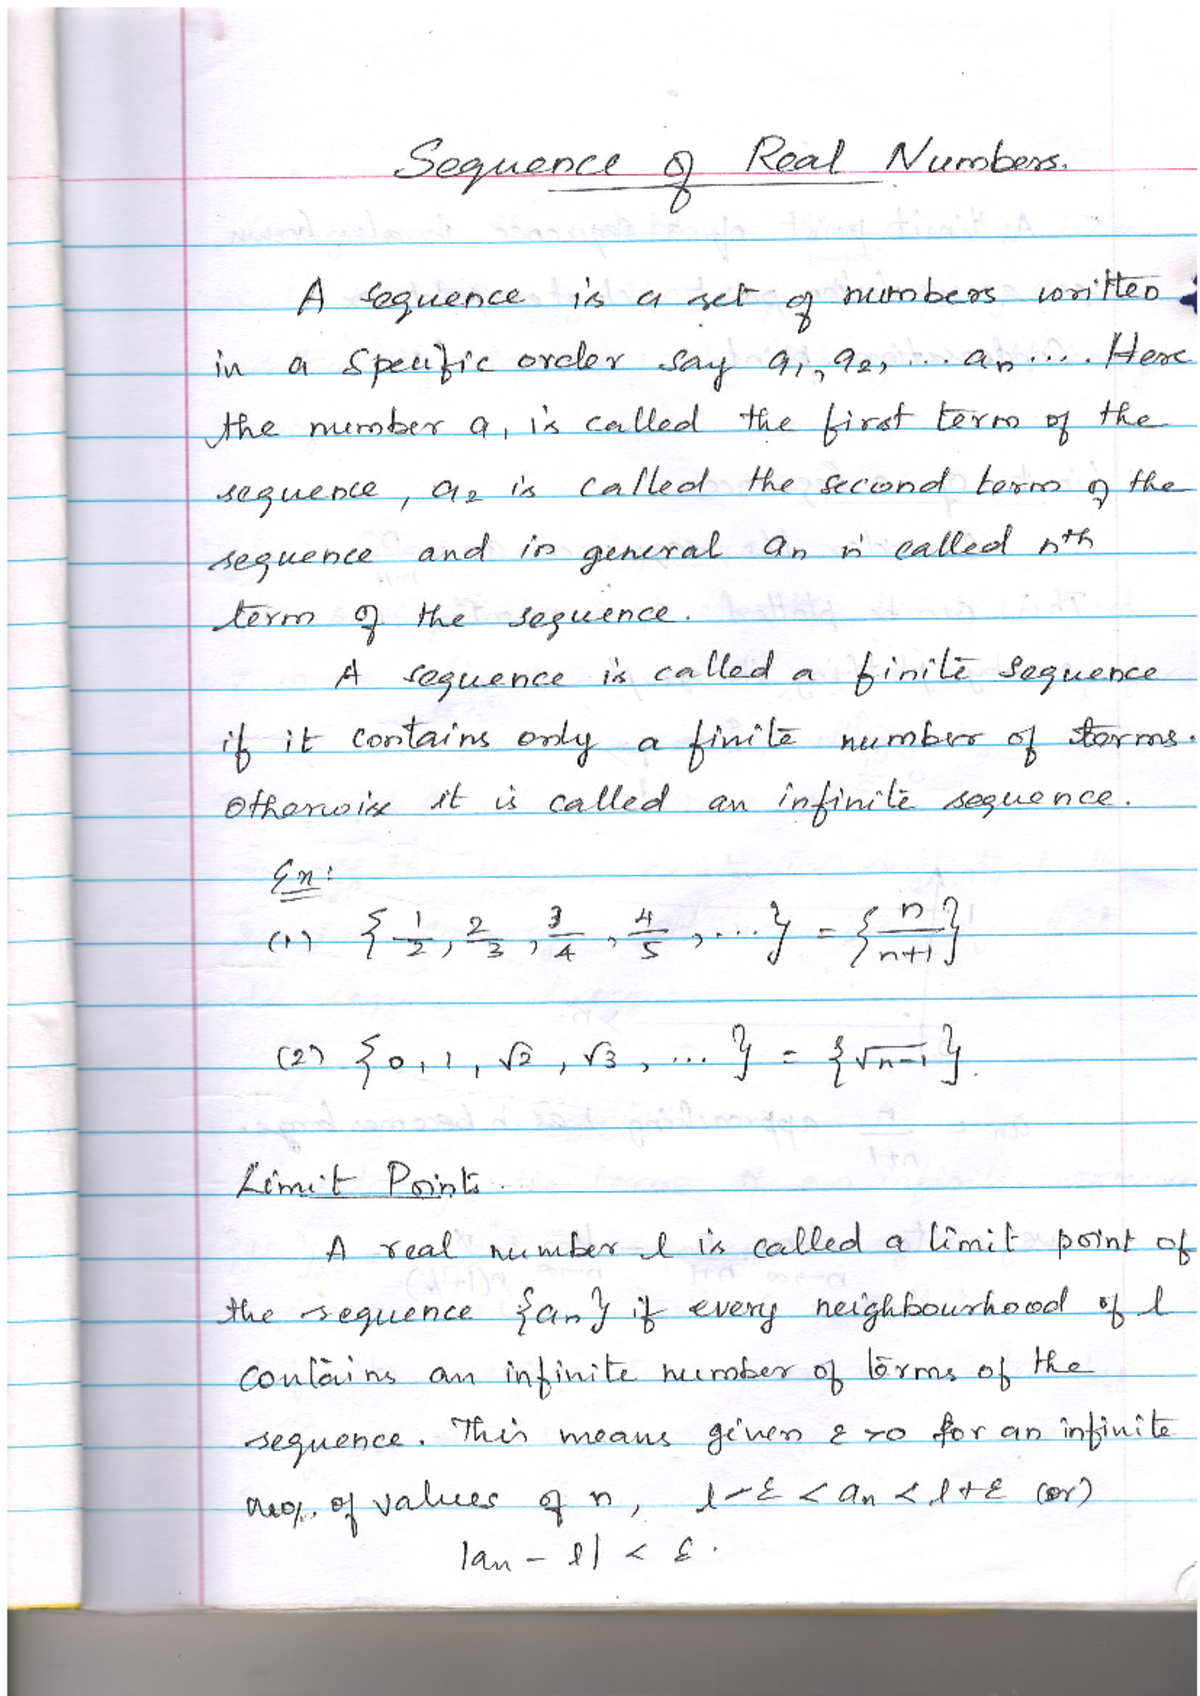 Sequence of Real Numbers.
A sequence is a set of numbers written
in a specific order say a₁, a₂, ... aₙ .... Here
the number a₁ is called the first term of the
sequence, a₂ is called the second term of the
sequence and in general aₙ is called nth
term of the sequence.
A sequence is called a finite sequence
if it contains only a finite number of terms.
Otherwise it is called an infinite sequence.
Ex:
(1) {1/2, 2/3, 3/4, 4/5, ...} = {n/n+1}
(2) {0, 1, √2, √3, ...} = {√n-1}.
Limit Points.
A real number l is called a limit point of
the sequence {aₙ} if every neighbourhood of l
contains an infinite number of terms of the
sequence. This means given ε>0 for an infinite
no. of values of n, l-ε < aₙ < l+ε (or)
|aₙ - l| < ε.